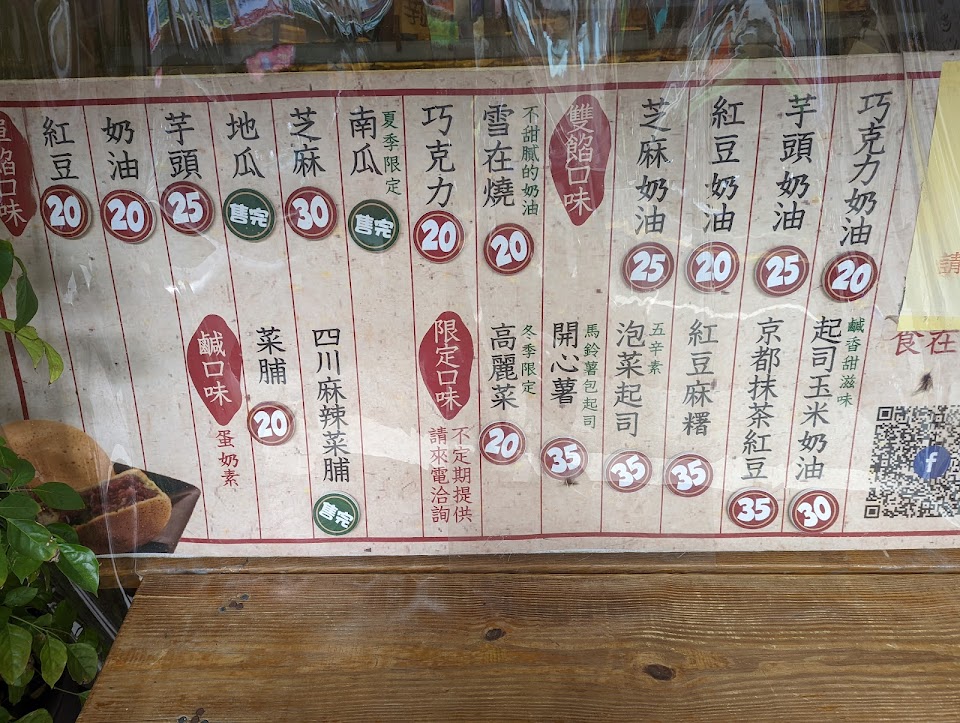 單餡口味
紅豆
20
奶油
20
芋頭
25
地瓜
售完
芝麻
30
南瓜
夏季限定
售完
巧克力
20
雪在燒
不甜膩的奶油
20
雙餡口味
芝麻奶油
25
紅豆奶油
20
芋頭奶油
25
巧克力奶油
20
請
鹹口味
蛋奶素
菜脯
20
四川麻辣菜脯
售完
限定口味
不定期提供
請來電洽詢
高麗菜
冬季限定
20
開心薯
馬鈴薯包起司
35
泡菜起司
五辛素
35
紅豆麻糬
35
京都抹茶紅豆
35
起司玉米奶油
鹹香甜滋味
30
食在
f